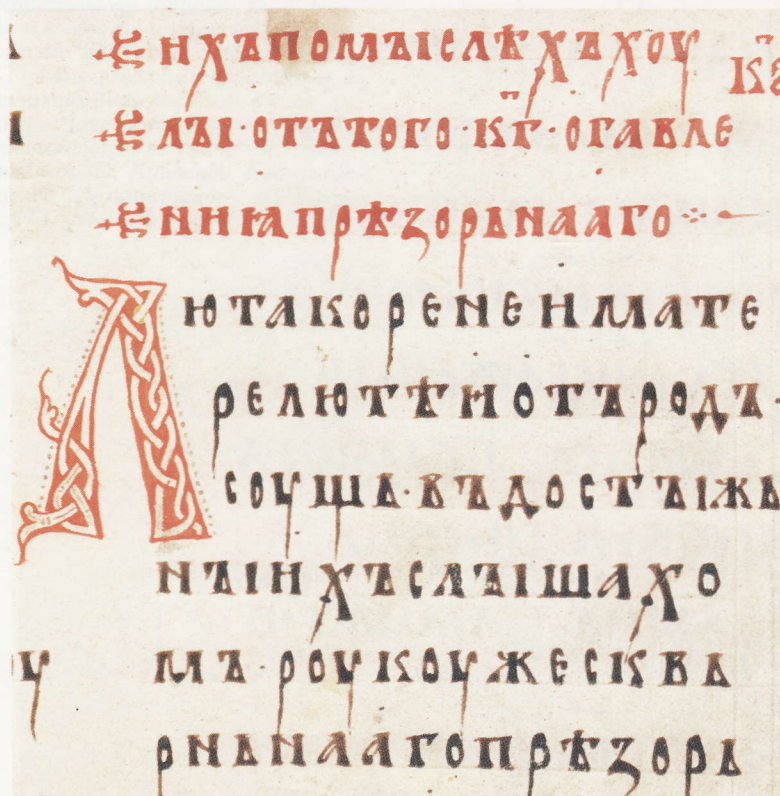 ꙇхъпомꙑслѣхъхоу
лꙑ·отътого·к҃г·огавле
ниꙗпрѣзорьнааго
Лютакоренеимате
релютѣиотърод
соуща·въдостꙑжь
нꙑихъслꙑшахо
мъ·роукоужескв
рньнаагопрѣзорь